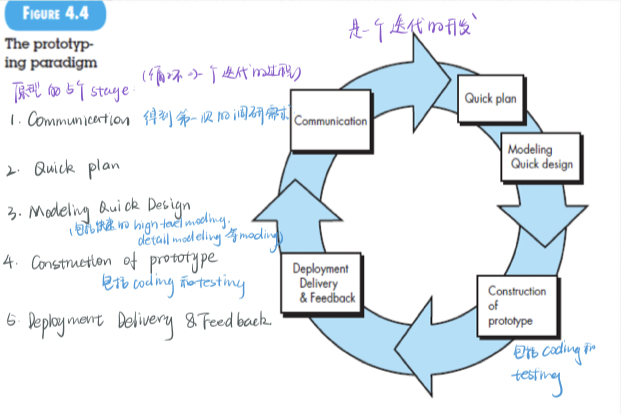 FIGURE 4.4
The prototyp-
ing paradigm
是一个迭代的开发
原型的5个stage.
(循环为一个迭代的过程)
1. Communication 得到第一次的调研需求
2. Quick plan
3. Modeling Quick Design
(包括快速的 high-level modling,
detail modeling 等 moding)
4. Construction of prototype
包括 coding 和 testing
5. Deployment Delivery & Feedback
Communication
Quick plan
Modeling
Quick design
Construction
of
prototype
包括 coding 和
testing
Deployment
Delivery
& Feedback